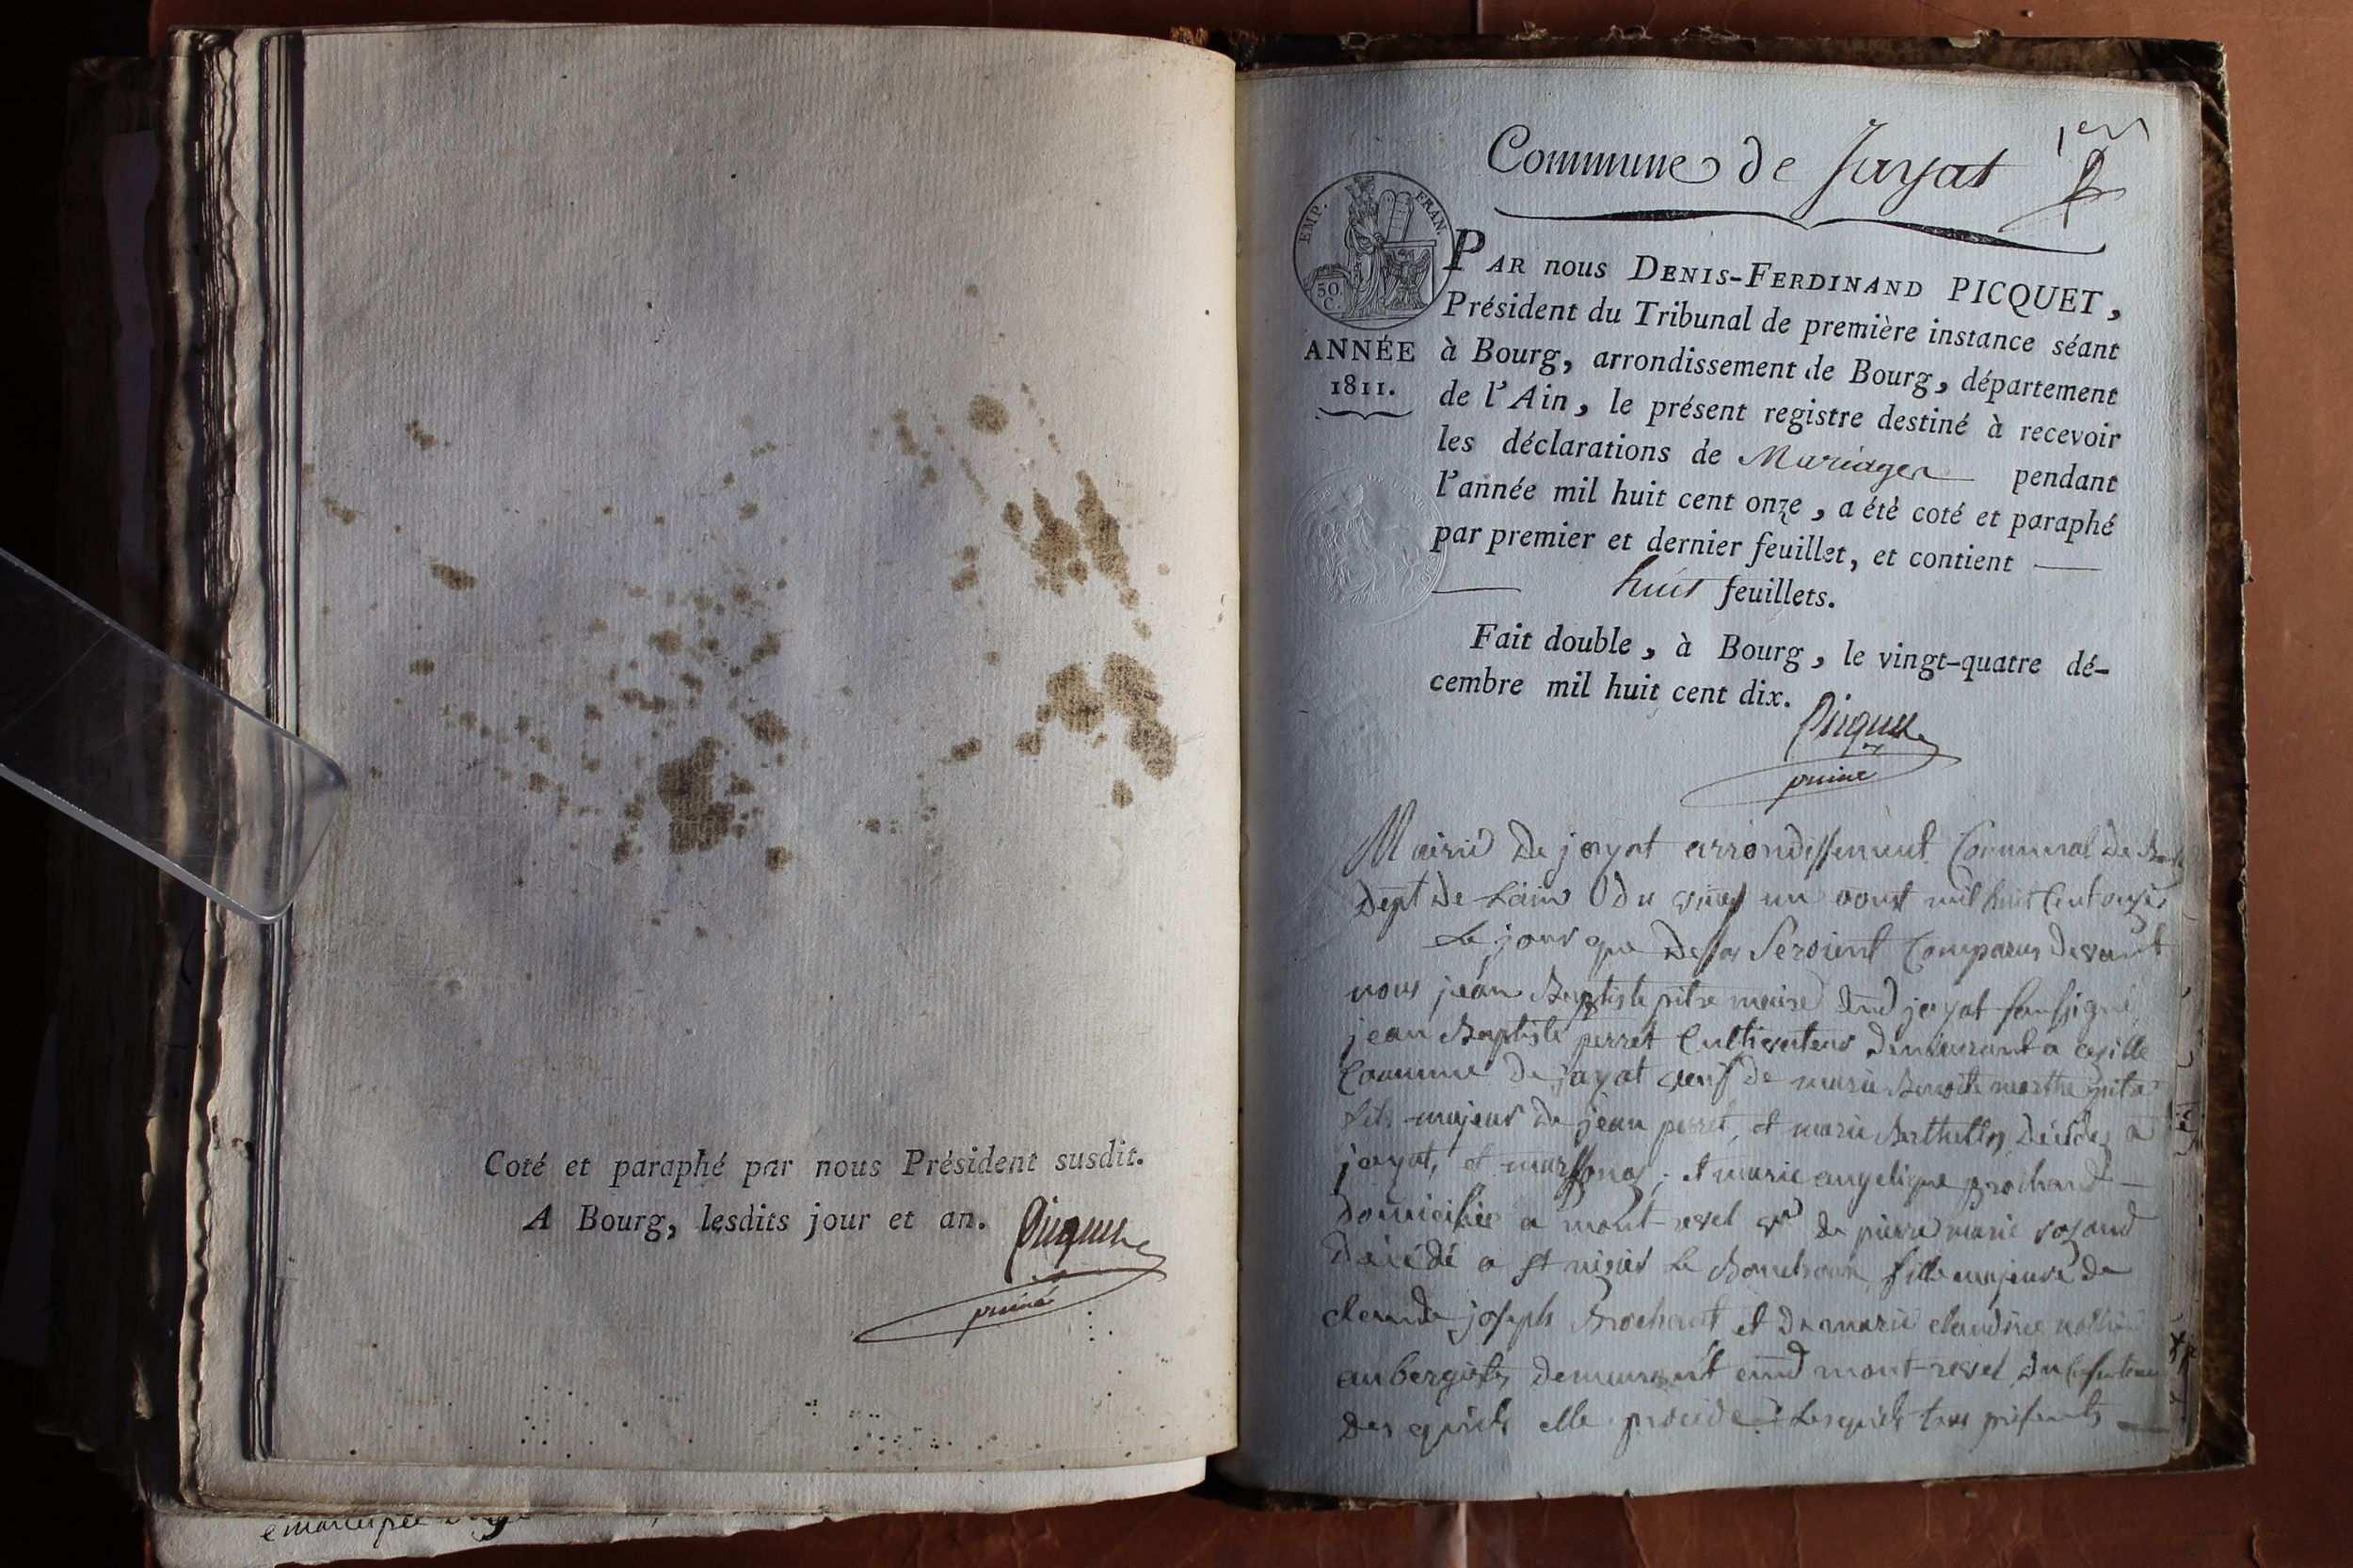 Coté et paraphé par nous Président susdit.
A Bourg, lesdits jour et an. Picquet
Commune de Jayat 1er
EMP. FRAN.
50 C.
ANNÉE
1811.
PAR nous DENIS-FERDINAND PICQUET,
Président du Tribunal de première instance séant
à Bourg, arrondissement de Bourg, département
de l'Ain, le présent registre destiné à recevoir
les déclarations de Mariages pendant
l'année mil huit cent onze, a été coté et paraphé
par premier et dernier feuillet, et contient
huit feuillets.
Fait double, à Bourg, le vingt-quatre dé-
cembre mil huit cent dix.
Picquet
Mairie De jayat arrondissement Communal De
Dept De Lain Du un aoust mil huit Cent onze
Le jour que Dessus Seroient Comparus Devant
nous jean Baptiste pitre maire dud jayat soussigné
jean Baptiste perret Cultivateur Demeurant a
Commune De jayat veuf de marie Benoite marthe
fils majeur De jean perret, et marie Berthillot Décédés a
jayat, et marsonas; et marie angelique Brochand
Domiciliée a mont-revel ve de pierre marie
Décédé a st nizier Le Bouchoux fille majeure de
claude joseph Brochand et De marie claudine
aubergistes Demeurant aud mont-revel Du Consentement
Des quels elle procède Lesquels tous présents